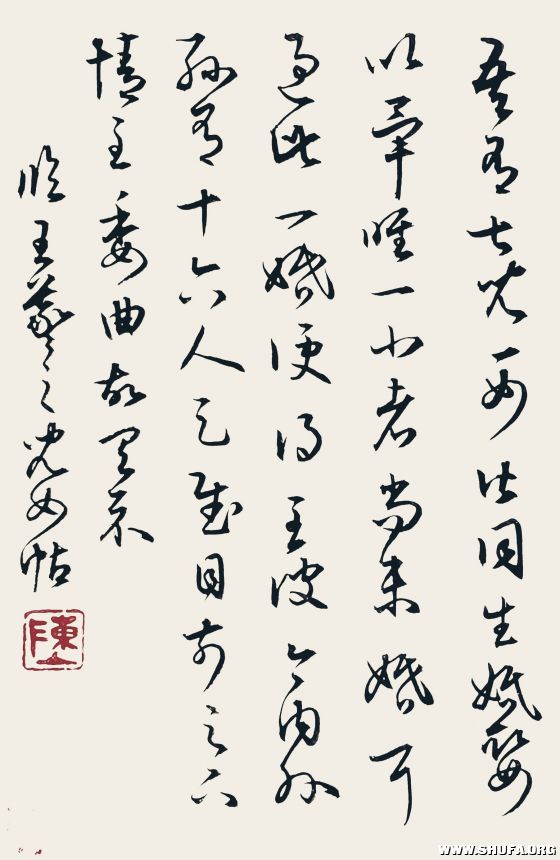 吾有七兒一女皆同生婚娶
以畢唯一小者尚未婚耳
過此一婚便得至彼今內外
孫有十六人足慰目前足下
情至委曲故具示
臨王羲之兒女帖
WWW.SHUFA.ORG